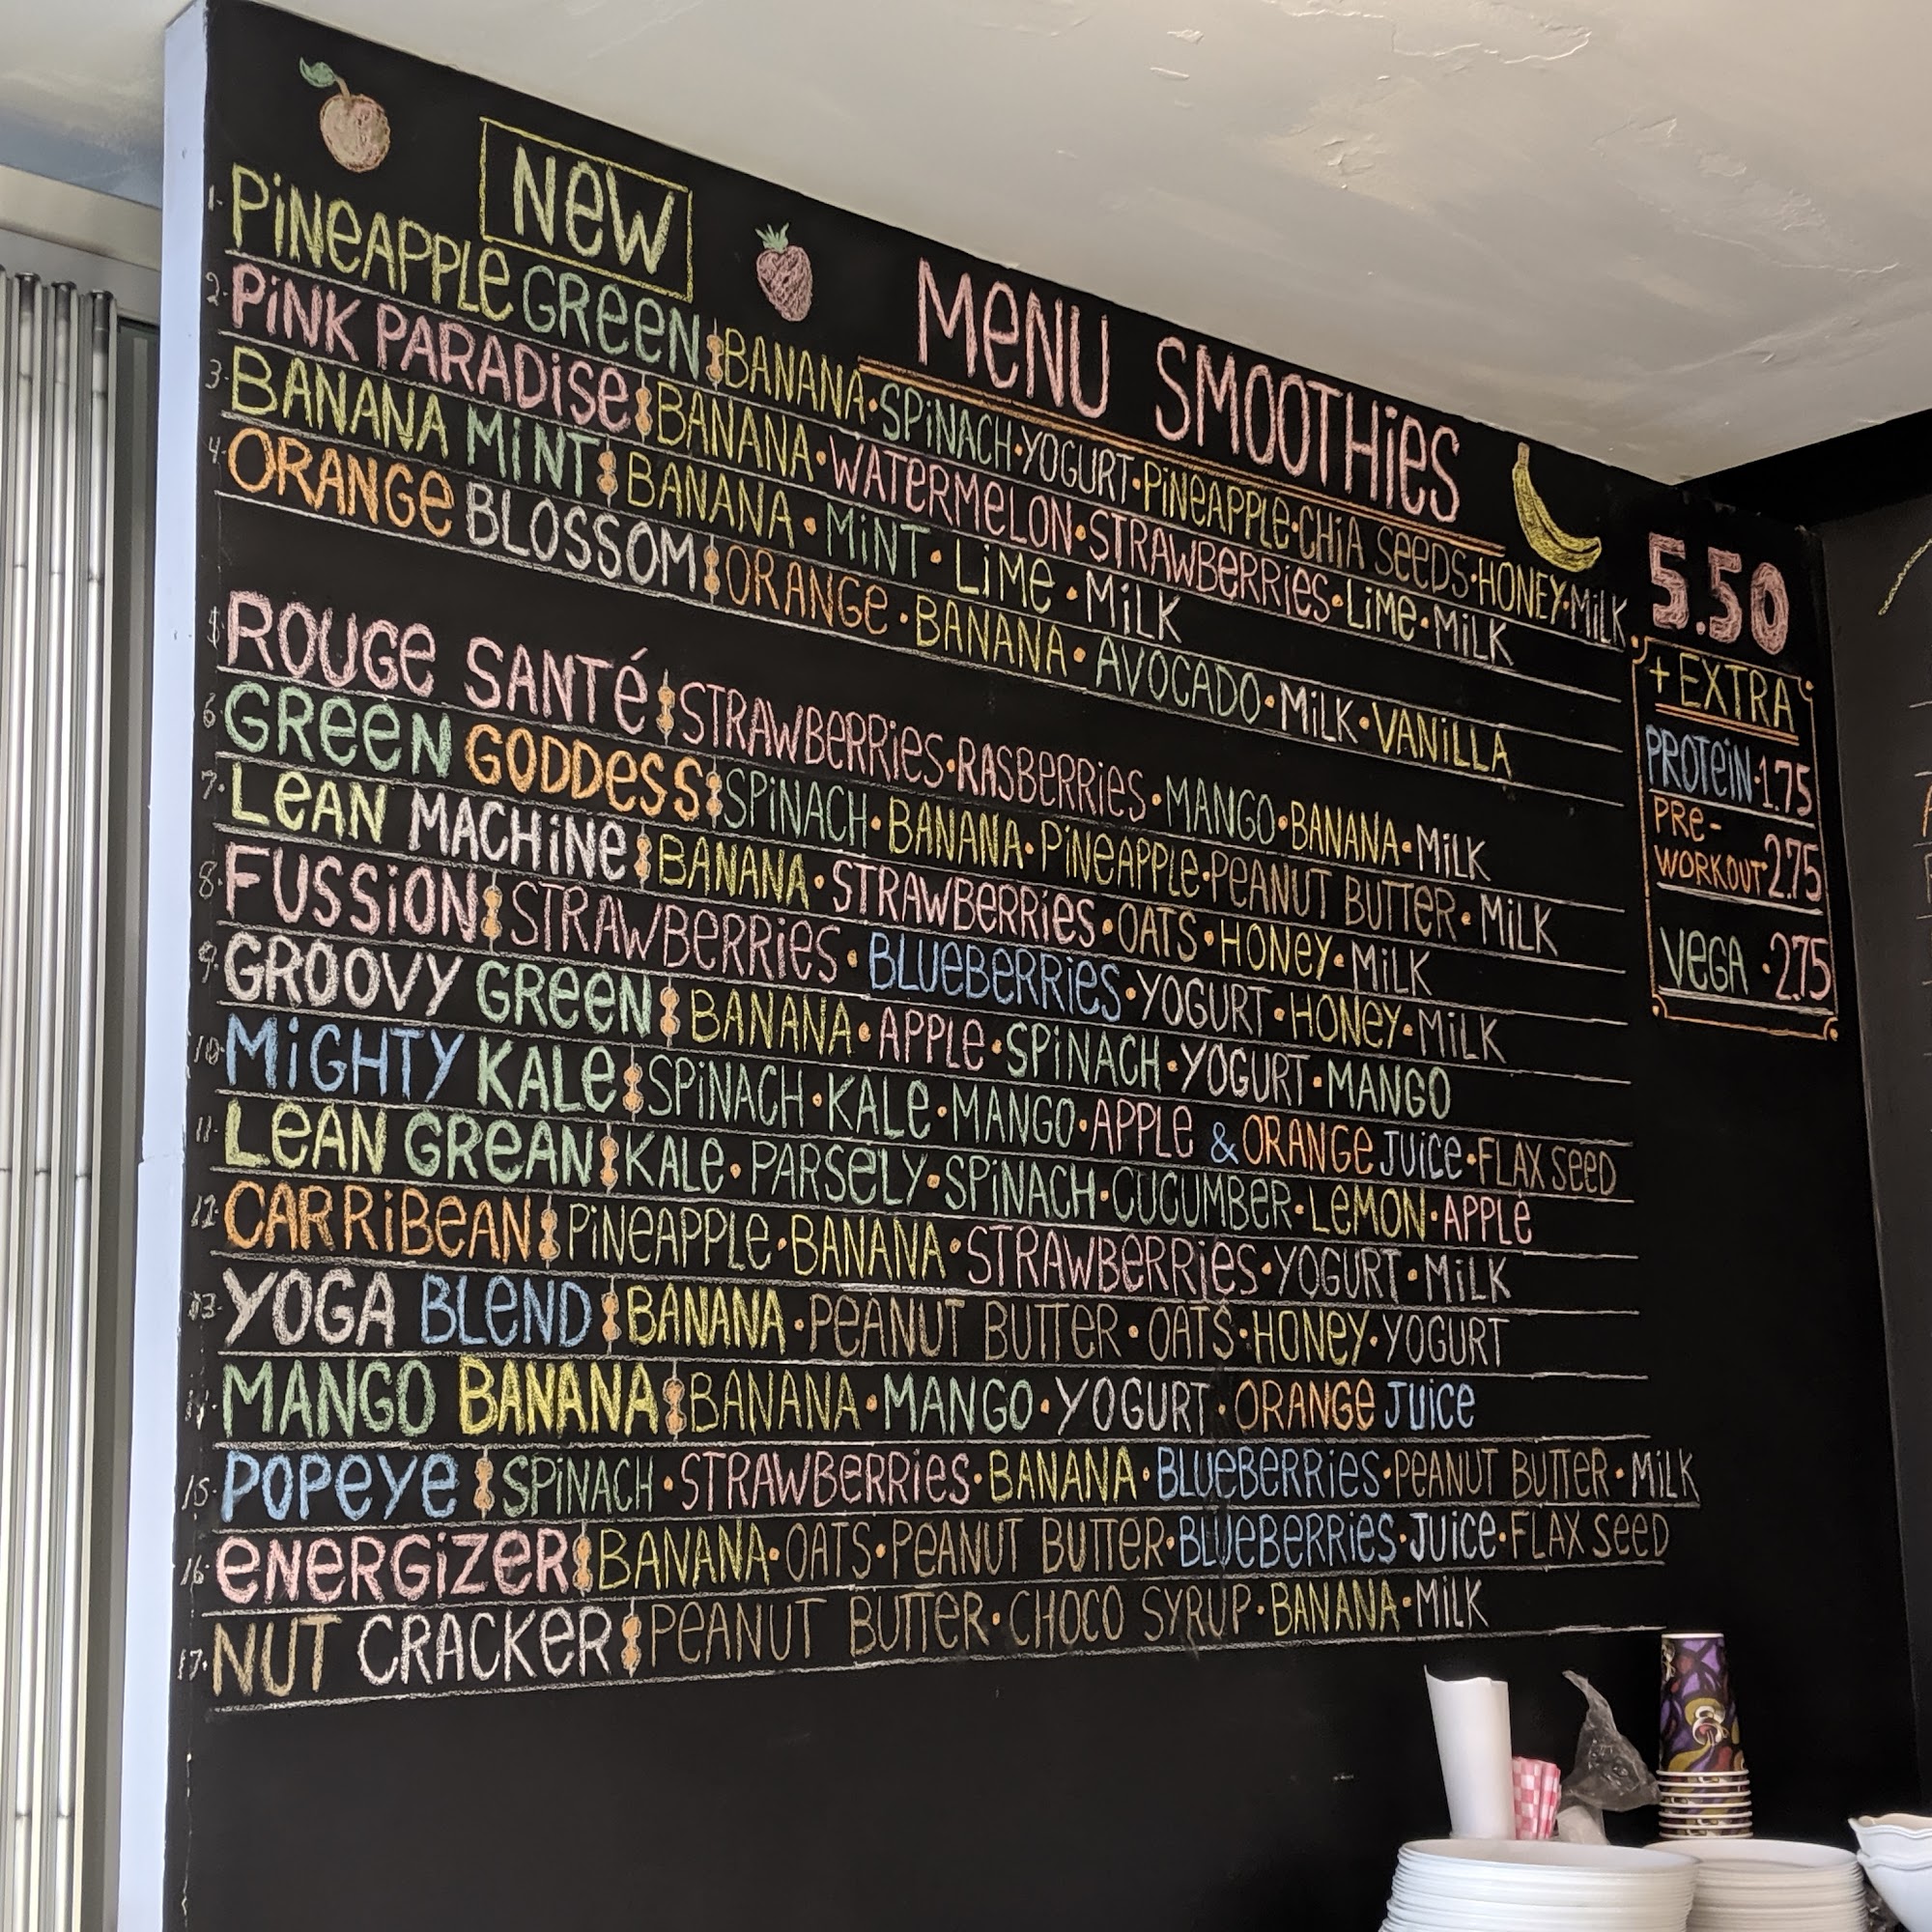 NEW
MENU SMOOTHIES
1. PINEAPPLE GREEN: BANANA·SPINACH·YOGURT·PINEAPPLE·CHIA SEEDS·HONEY·MILK
2. PINK PARADISE: BANANA·WATERMELON·STRAWBERRIES·LIME·MILK
3. BANANA MINT: BANANA·MINT·LIME·MILK
4. ORANGE BLOSSOM: ORANGE·BANANA·AVOCADO·MILK·VANILLA
5. ROUGE SANTÉ: STRAWBERRIES·RASBERRIES·MANGO·BANANA·MILK
6. GREEN GODDESS: SPINACH·BANANA·PINEAPPLE·PEANUT BUTTER·MILK
7. LEAN MACHINE: BANANA·STRAWBERRIES·OATS·HONEY·MILK
8. FUSSION: STRAWBERRIES·BLUEBERRIES·YOGURT·HONEY·MILK
9. GROOVY GREEN: BANANA·APPLE·SPINACH·YOGURT·MANGO
10. MIGHTY KALE: SPINACH·KALE·MANGO·APPLE & ORANGE JUICE·FLAX SEED
11. LEAN GREAN: KALE·PARSELY·SPINACH·CUCUMBER·LEMON·APPLE
12. CARRIBEAN: PINEAPPLE·BANANA·STRAWBERRIES·YOGURT·MILK
13. YOGA BLEND: BANANA·PEANUT BUTTER·OATS·HONEY·YOGURT
14. MANGO BANANA: BANANA·MANGO·YOGURT·ORANGE JUICE
15. POPEYE: SPINACH·STRAWBERRIES·BANANA·BLUEBERRIES·PEANUT BUTTER·MILK
16. ENERGIZER: BANANA·OATS·PEANUT BUTTER·BLUEBERRIES·JUICE·FLAX SEED
17. NUT CRACKER: PEANUT BUTTER·CHOCO SYRUP·BANANA·MILK
5.50
+EXTRA
PROTEIN·1.75
PRE-
WORKOUT 2.75
VEGA·2.75